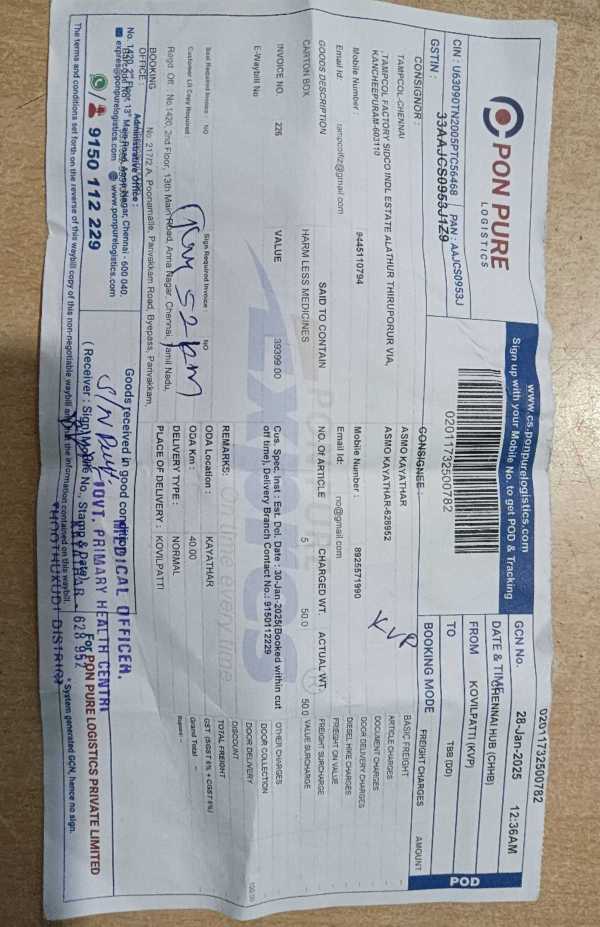 PON PURE
LOGISTICS
www.cs.ponpurelogistics.com
Sign up with your Mobile No. to get POD & Tracking
CIN : U63090TN2005PTC56468 PAN : AAJCS0953J
GSTIN : 33AAJCS0953J1Z9
02011732500782
GCN No. 02011732500782
DATE & TIME 28-Jan-2025 12:36AM
FROM CHENNAI HUB (CHHB)
TO KOVILPATTI (KVP)
BOOKING MODE TBB (DD)
POD
CONSIGNOR :
TAMPCOL-CHENNAI
,TAMPCOL FACTORY SIDCO INDL ESTATE ALATHUR THIRUPORUR VIA,
KANCHEEPURAM-603110
Mobile Number : 9445110794
Email Id: tampcolfiz@gmail.com
CONSIGNEE :
ASMO KAYATHAR
ASMO KAYATHAR-628952
KVP
Mobile Number : 8925571990
Email Id: no@gmail.com
GOODS DESCRIPTION SAID TO CONTAIN NO. OF ARTICLE CHARGED WT. ACTUAL WT.
CARTON BOX HARM LESS MEDICINES 5 50.0 50.0
INVOICE NO. 226 VALUE 39399.00
E-Waybill No
Cus. Spec. Inst : Est. Del. Date : 30-Jan-2025(Booked within cut
off time), Delivery Branch Contact No.: 9150112229
FREIGHT CHARGES AMOUNT
BASIC FREIGHT
ARTICLE CHARGES
DOCUMENT CHARGES
DOOR DELIVERY CHARGES
DIESEL HIKE CHARGES
FREIGHT ON VALUE
FREIGHT SURCHARGE
VALUE SURCHARGE
OTHER CHARGES
DOOR COLLECTION
DOOR DELIVERY
DISCOUNT
TOTAL FREIGHT
GST (SGST 6% + CGST 6%)
Grand Total
Seal Required Invoice : NO Sign Required Invoice : NO
Customer LR Copy Required
REMARKS:
ODA Location : KAYATHAR
ODA Km : 40.00
DELIVERY TYPE : NORMAL
PLACE OF DELIVERY : KOVILPATTI
Regd. Off : No.1420, 2nd Floor, 13th Main Road, Anna Nagar, Chennai, Tamil Nadu,
BOOKING OFFICE : No. 217/2 A, Poonamalle, Parivakkam Road, Byepass, Parivakkam,
Administrative Office :
No. 1420, 2nd Floor, 13th Main Road, Anna Nagar, Chennai - 600 040.
www.ponpurelogistics.com
9150 112 229
Goods received in good condition
MEDICAL OFFICER,
GOVT. PRIMARY HEALTH CENTRE
628 952
THOOTHUKUDI DISTRICT
(Receiver : Sign, Mobile No., Stamp & Date)
For PON PURE LOGISTICS PRIVATE LIMITED
The terms and conditions set forth on the reverse of this waybill copy of this non-negotiable waybill and the information contained on this waybill.
* System generated GCN, hence no sign.